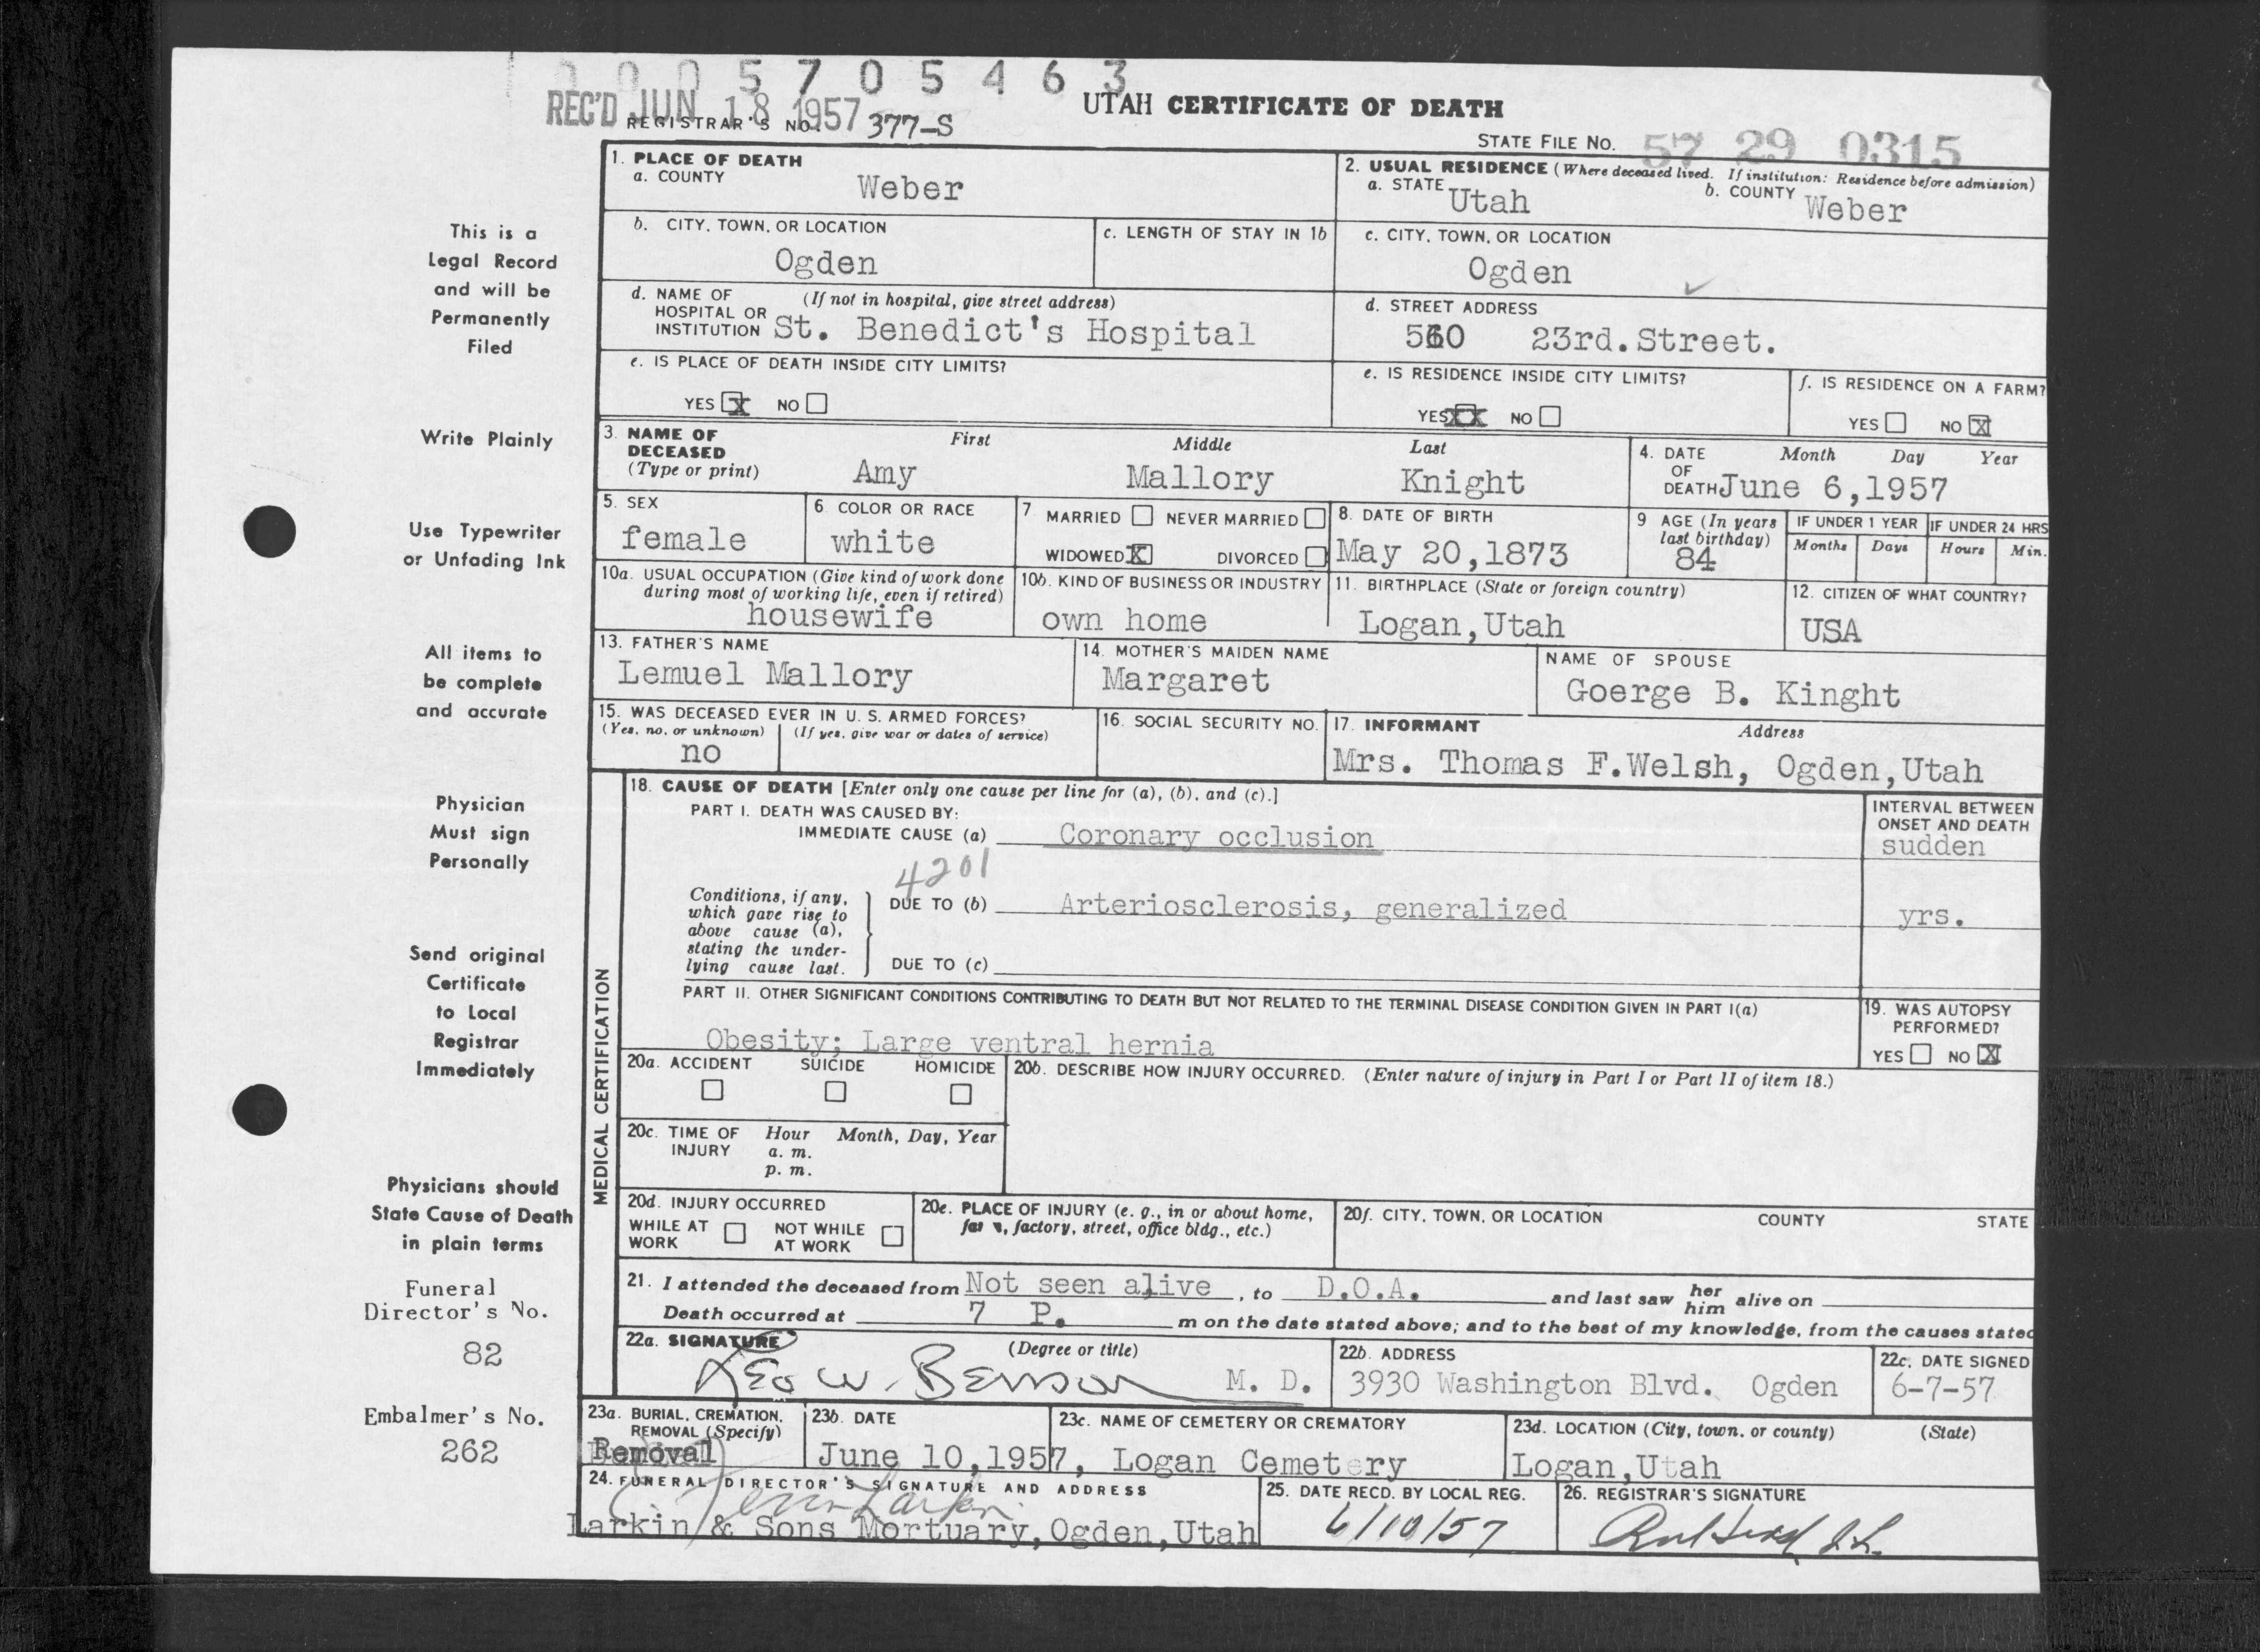 0005705463
REC'D JUN 18 1957
REGISTRAR'S NO. 377-S
UTAH CERTIFICATE OF DEATH
STATE FILE NO. 57 29 0315
This is a
Legal Record
and will be
Permanently
Filed
Write Plainly
Use Typewriter
or Unfading Ink
All items to
be complete
and accurate
Physician
Must sign
Personally
Send original
Certificate
to Local
Registrar
Immediately
Physicians should
State Cause of Death
in plain terms
Funeral
Director's No.
82
Embalmer's No.
262
1. PLACE OF DEATH
a. COUNTY
Weber
2. USUAL RESIDENCE (Where deceased lived. If institution: Residence before admission)
a. STATE Utah b. COUNTY Weber
b. CITY, TOWN, OR LOCATION
Ogden
c. LENGTH OF STAY IN 1b
c. CITY, TOWN, OR LOCATION
Ogden
d. NAME OF HOSPITAL OR INSTITUTION (If not in hospital, give street address)
St. Benedict's Hospital
d. STREET ADDRESS
23rd. Street.
e. IS PLACE OF DEATH INSIDE CITY LIMITS?
YES X NO
e. IS RESIDENCE INSIDE CITY LIMITS?
YES XX NO
f. IS RESIDENCE ON A FARM?
YES NO X
3. NAME OF DECEASED (Type or print)
First Middle Last
Amy Mallory Knight
4. DATE OF DEATH Month Day Year
June 6,1957
5. SEX
female
6. COLOR OR RACE
white
7. MARRIED NEVER MARRIED
WIDOWED X DIVORCED
8. DATE OF BIRTH
May 20,1873
9 AGE (In years last birthday)
84
IF UNDER 1 YEAR IF UNDER 24 HRS
Months Days Hours Min.
10a. USUAL OCCUPATION (Give kind of work done during most of working life, even if retired)
housewife
10b. KIND OF BUSINESS OR INDUSTRY
own home
11. BIRTHPLACE (State or foreign country)
Logan,Utah
12. CITIZEN OF WHAT COUNTRY?
USA
13. FATHER'S NAME
Lemuel Mallory
14. MOTHER'S MAIDEN NAME
Margaret
NAME OF SPOUSE
Goerge B. Kinght
15. WAS DECEASED EVER IN U. S. ARMED FORCES?
(Yes, no, or unknown) (If yes, give war or dates of service)
no
16. SOCIAL SECURITY NO.
17. INFORMANT Address
Mrs. Thomas F.Welsh, Ogden,Utah
MEDICAL CERTIFICATION
18. CAUSE OF DEATH [Enter only one cause per line for (a), (b), and (c).]
PART I. DEATH WAS CAUSED BY:
IMMEDIATE CAUSE (a) Coronary occlusion
INTERVAL BETWEEN ONSET AND DEATH
sudden
4201
Conditions, if any, which gave rise to above cause (a), stating the underlying cause last.
DUE TO (b) Arteriosclerosis, generalized
yrs.
DUE TO (c)
PART II. OTHER SIGNIFICANT CONDITIONS CONTRIBUTING TO DEATH BUT NOT RELATED TO THE TERMINAL DISEASE CONDITION GIVEN IN PART I(a)
Obesity; Large ventral hernia
19. WAS AUTOPSY PERFORMED?
YES NO X
20a. ACCIDENT SUICIDE HOMICIDE
20b. DESCRIBE HOW INJURY OCCURRED. (Enter nature of injury in Part I or Part II of item 18.)
20c. TIME OF INJURY Hour Month, Day, Year
a. m.
p. m.
20d. INJURY OCCURRED
WHILE AT WORK NOT WHILE AT WORK
20e. PLACE OF INJURY (e. g., in or about home, factory, street, office bldg., etc.)
20f. CITY, TOWN, OR LOCATION COUNTY STATE
21. I attended the deceased from Not seen alive, to D.O.A. and last saw her him alive on
Death occurred at 7 P. m on the date stated above; and to the best of my knowledge, from the causes stated
22a. SIGNATURE (Degree or title)
Leo W. Benson M. D.
22b. ADDRESS
3930 Washington Blvd. Ogden
22c. DATE SIGNED
6-7-57
23a. BURIAL, CREMATION, REMOVAL (Specify)
Removal
23b. DATE
June 10,1957,
23c. NAME OF CEMETERY OR CREMATORY
Logan Cemetery
23d. LOCATION (City, town, or county) (State)
Logan,Utah
24. FUNERAL DIRECTOR'S SIGNATURE AND ADDRESS
Larkin
Larkin & Sons Mortuary,Ogden,Utah
25. DATE RECD. BY LOCAL REG.
6/10/57
26. REGISTRAR'S SIGNATURE